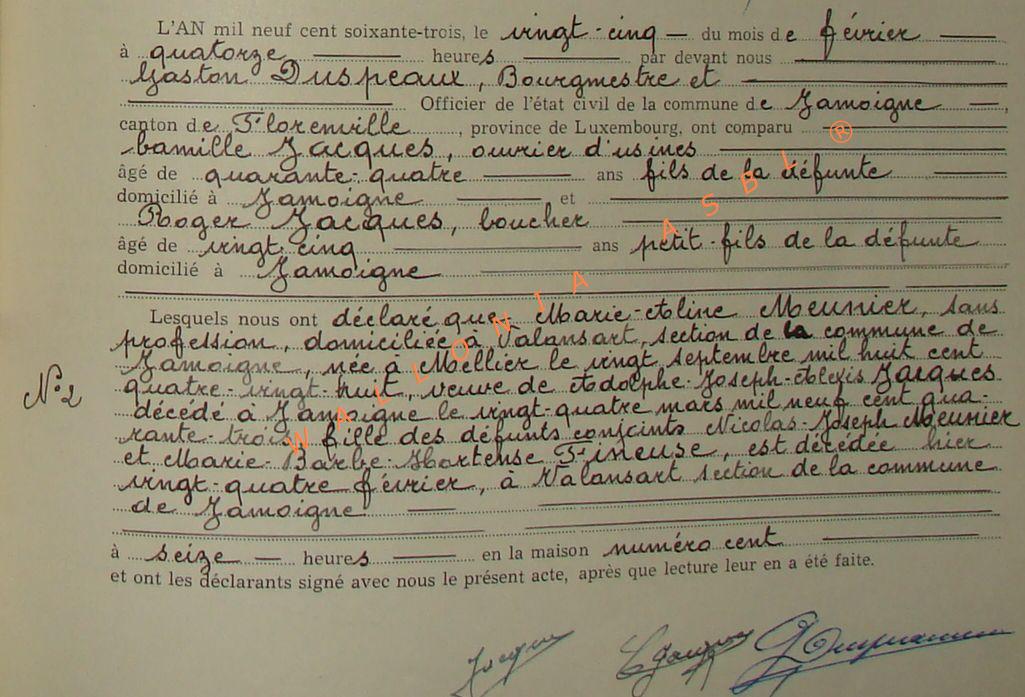 L'AN mil neuf cent soixante-trois, le vingt-cinq — du mois de février
à quatorze heures par devant nous
Gaston Duspeaux, Bourgmestre et
Officier de l'état civil de la commune de Jamoigne —,
canton de Florenville, province de Luxembourg, ont comparu
Camille Jacques, ouvrier d'usines
âgé de quarante-quatre ans fils de la défunte
domicilié à Jamoigne et
Roger Jacques, boucher
âgé de vingt cinq ans petit-fils de la défunte
domicilié à Jamoigne
Lesquels nous ont déclaré que Marie-Aline Meunier, sans
profession, domiciliée à Valansart, section de la commune de
Jamoigne, née à Mellier le vingt septembre mil huit cent
N° 2 quatre-vingt-huit, veuve de Adolphe-Joseph-Alexis Jacques
décédé à Jamoigne le vingt-quatre mars mil neuf cent qua-
rante-trois, fille des défunts conjoints Nicolas-Joseph Meunier
et Marie-Barbe-Hortense Fineuse, est décédée hier
vingt-quatre février, à Valansart section de la commune
de Jamoigne
à seize — heures en la maison numéro cent
et ont les déclarants signé avec nous le présent acte, après que lecture leur en a été faite.
WALLONIA ASBL ®
Jacques CJacques